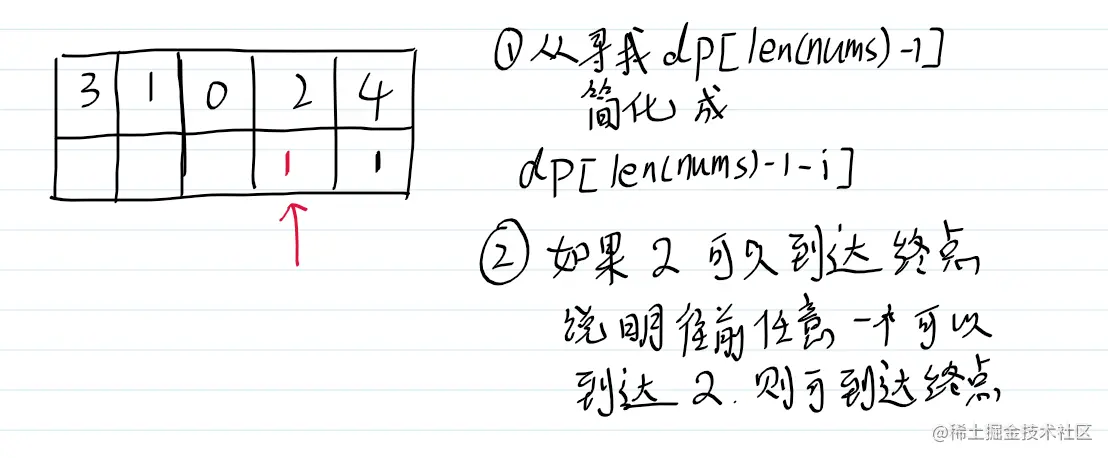 3 1 0 2 4
1 1
①从寻找dp[len(nums)-1]
简化成
dp[len(nums)-1-i]
② 如果 2 可以到达终点
说明往前任意一个可以
到达 2. 则可到达终点
@稀土掘金技术社区